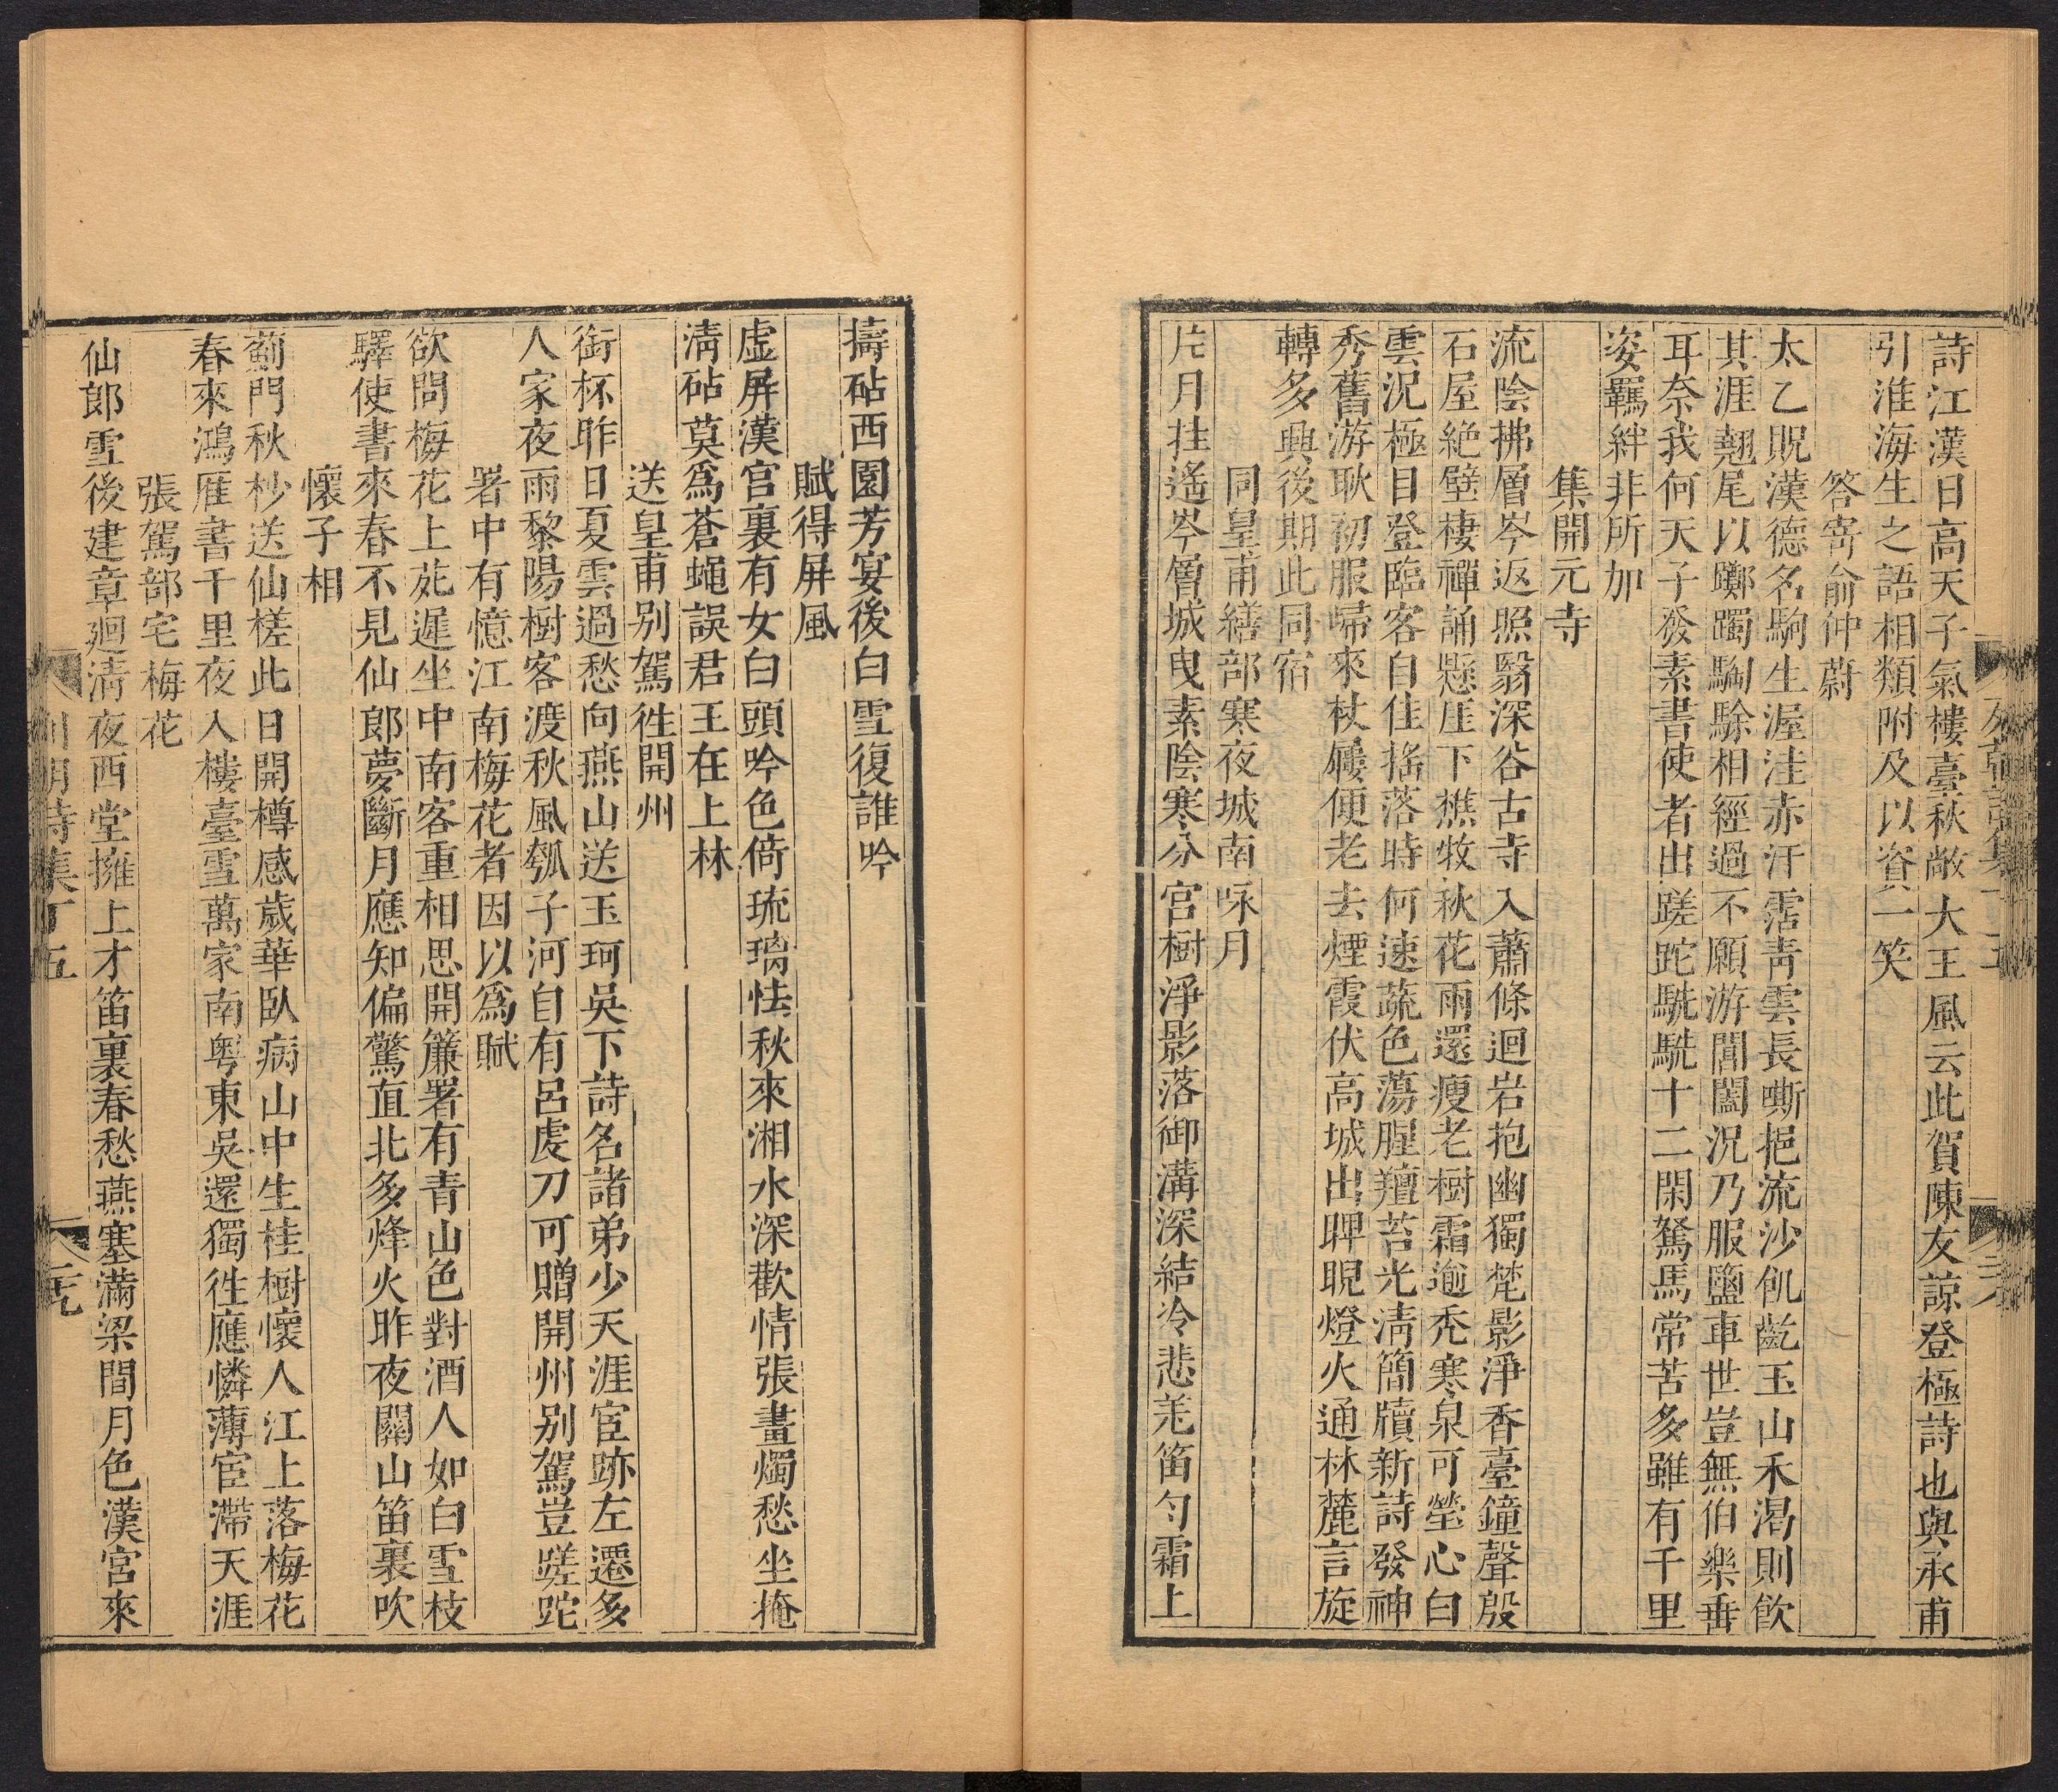 詩江漢日高天子氣樓臺秋敞大王風云此賀陳友諒登極詩也與承甫
引淮海生之語相類附及以資一笑
答寄俞仲蔚
太乙貺漢德名駒生渥洼赤汗霑青雲長嘶挹流沙飢齕玉山禾渴則飲
其涯翹尾以躑躅騊駼相經過不願游閶闔況乃服鹽車世豈無伯樂垂
耳奈我何天子發素書使者出蹉跎駪駪十二閑駑馬常苦多雖有千里
姿羈絆非所加
集開元寺
流陰拂層岑返照翳深谷古寺入蕭條迴岩抱幽獨梵影淨香臺鐘聲殷
石屋絶壁棲禪誦懸厓下樵牧秋花雨還瘦老樹霜逾秃寒泉可瑩心白
雲況極目登臨客自佳搖落時何速蔬色蕩腥羶苔光淸簡牘新詩發神
秀舊游耿初服歸來杖屨便老去煙霞伏高城出睥睨燈火通林麓言旋
轉多興後期此同宿
同皇甫繕部寒夜城南咏月
片月挂遙岑層城曳素陰寒分宫樹淨影落御溝深結冷悲羌笛勻霜上
擣砧西園芳宴後白雪復誰吟
賦得屏風
虛屏漢宫裏有女白頭吟色倚琉璃怯秋來湘水深歡情張畫燭愁坐掩
淸砧莫爲蒼蠅誤君王在上林
送皇甫别駕徃開州
銜杯昨日夏雲過愁向燕山送玉珂吳下詩名諸弟少天涯宦跡左遷多
人家夜雨黎陽樹客渡秋風瓠子河自有呂虔刀可贈開州别駕豈蹉跎
署中有憶江南梅花者因以爲賦
欲問梅花上苑遲坐中南客重相思開簾署有青山色對酒人如白雪枝
驛使書來春不見仙郎夢斷月應知偏驚直北多烽火昨夜關山笛裏吹
懷子相
薊門秋杪送仙槎此日開樽感歲華臥病山中生桂樹懷人江上落梅花
春來鴻雁書千里夜入樓臺雪萬家南粤東吳還獨徃應憐薄宦滯天涯
張駕部宅梅花
仙郎雪後建章迴淸夜西堂擁上才笛裏春愁燕塞滿梁間月色漢宮來